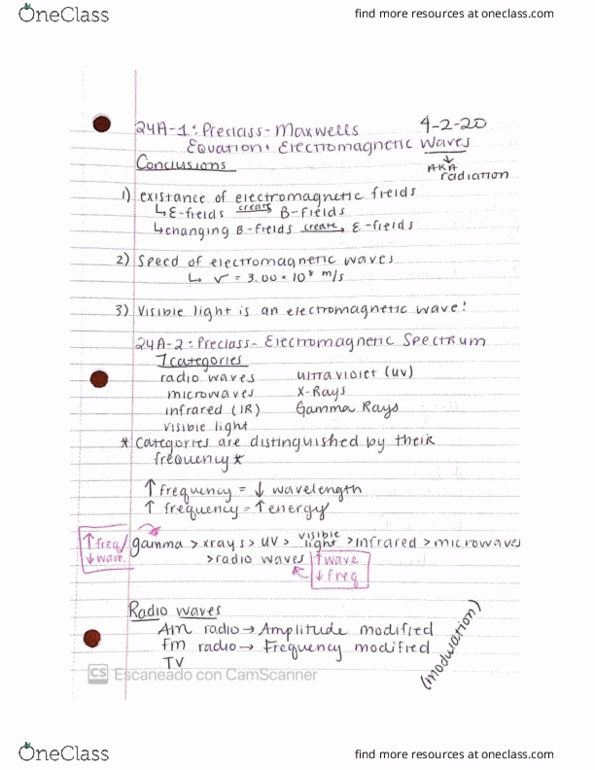 OneClass find more resources at oneclass.com
24A-1: Preclass- Maxwells 4-2-20
Equation: Electromagnetic Waves
Conclusions AKA radiation
1) existance of electromagnetic fields
↳ E-fields create B-fields
↳ changing B-fields create E-fields
2) Speed of electromagnetic waves
↳ v = 3.00 × 10⁸ m/s
3) Visible light is an electromagnetic wave!
24A-2: Preclass- Electromagnetic Spectrum
7 categories
radio waves ultraviolet (uv)
microwaves X-Rays
infrared (IR) Gamma Rays
visible light
* Categories are distinguished by their
frequency *
↑ frequency = ↓ wavelength
↑ frequency = ↑ energy
↑ freq/ gamma > xrays > UV > visible light > infrared > microwaves
↓ wave. > radio waves ↑ wave
↓ freq
Radio waves
Am radio → Amplitude modified
fm radio → Frequency modified
(modulation)
TV
CS Escaneado con CamScanner
OneClass find more resources at oneclass.com